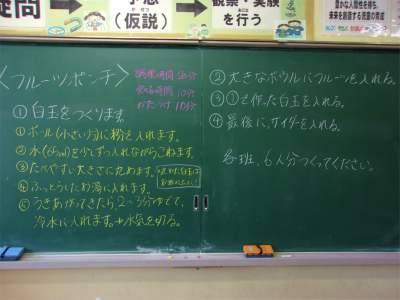 疑問
予想
(仮説)
観察・実験
を行う
豊かな人間性を持ち、
未来を創造する児童の育成
<フルーツポンチ>
調理時間 20分
10分
かたづけ 10分
① 白玉をつくります。
① ボール(小さい方)に粉を入れます。
② 水( )を少しずつ入れながらこねます。
③ たべやすい大きさに丸めます。
④ ふっとうしたお湯に入れます。
⑤ うきあがってきたら2〜3分ゆでて、
冷水に入れます。→水気を切る。
② 大きなボウルにフルーツを入れる。
③ ①で作った白玉を入れる。
④ 最後に、サイダーを入れる。
各班、6人分つくってください。